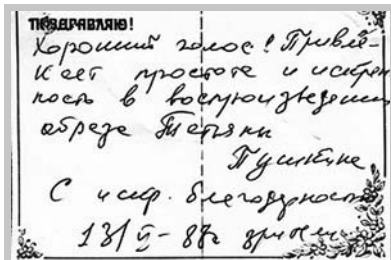 ПОЗДРАВЛЯЮ!
Хороший голос! Привле-
кает простота и искрен
ность в воспроизведении
образа Татьяны
Пушкина
С искр. благодарностью
13/II - 88г зрители